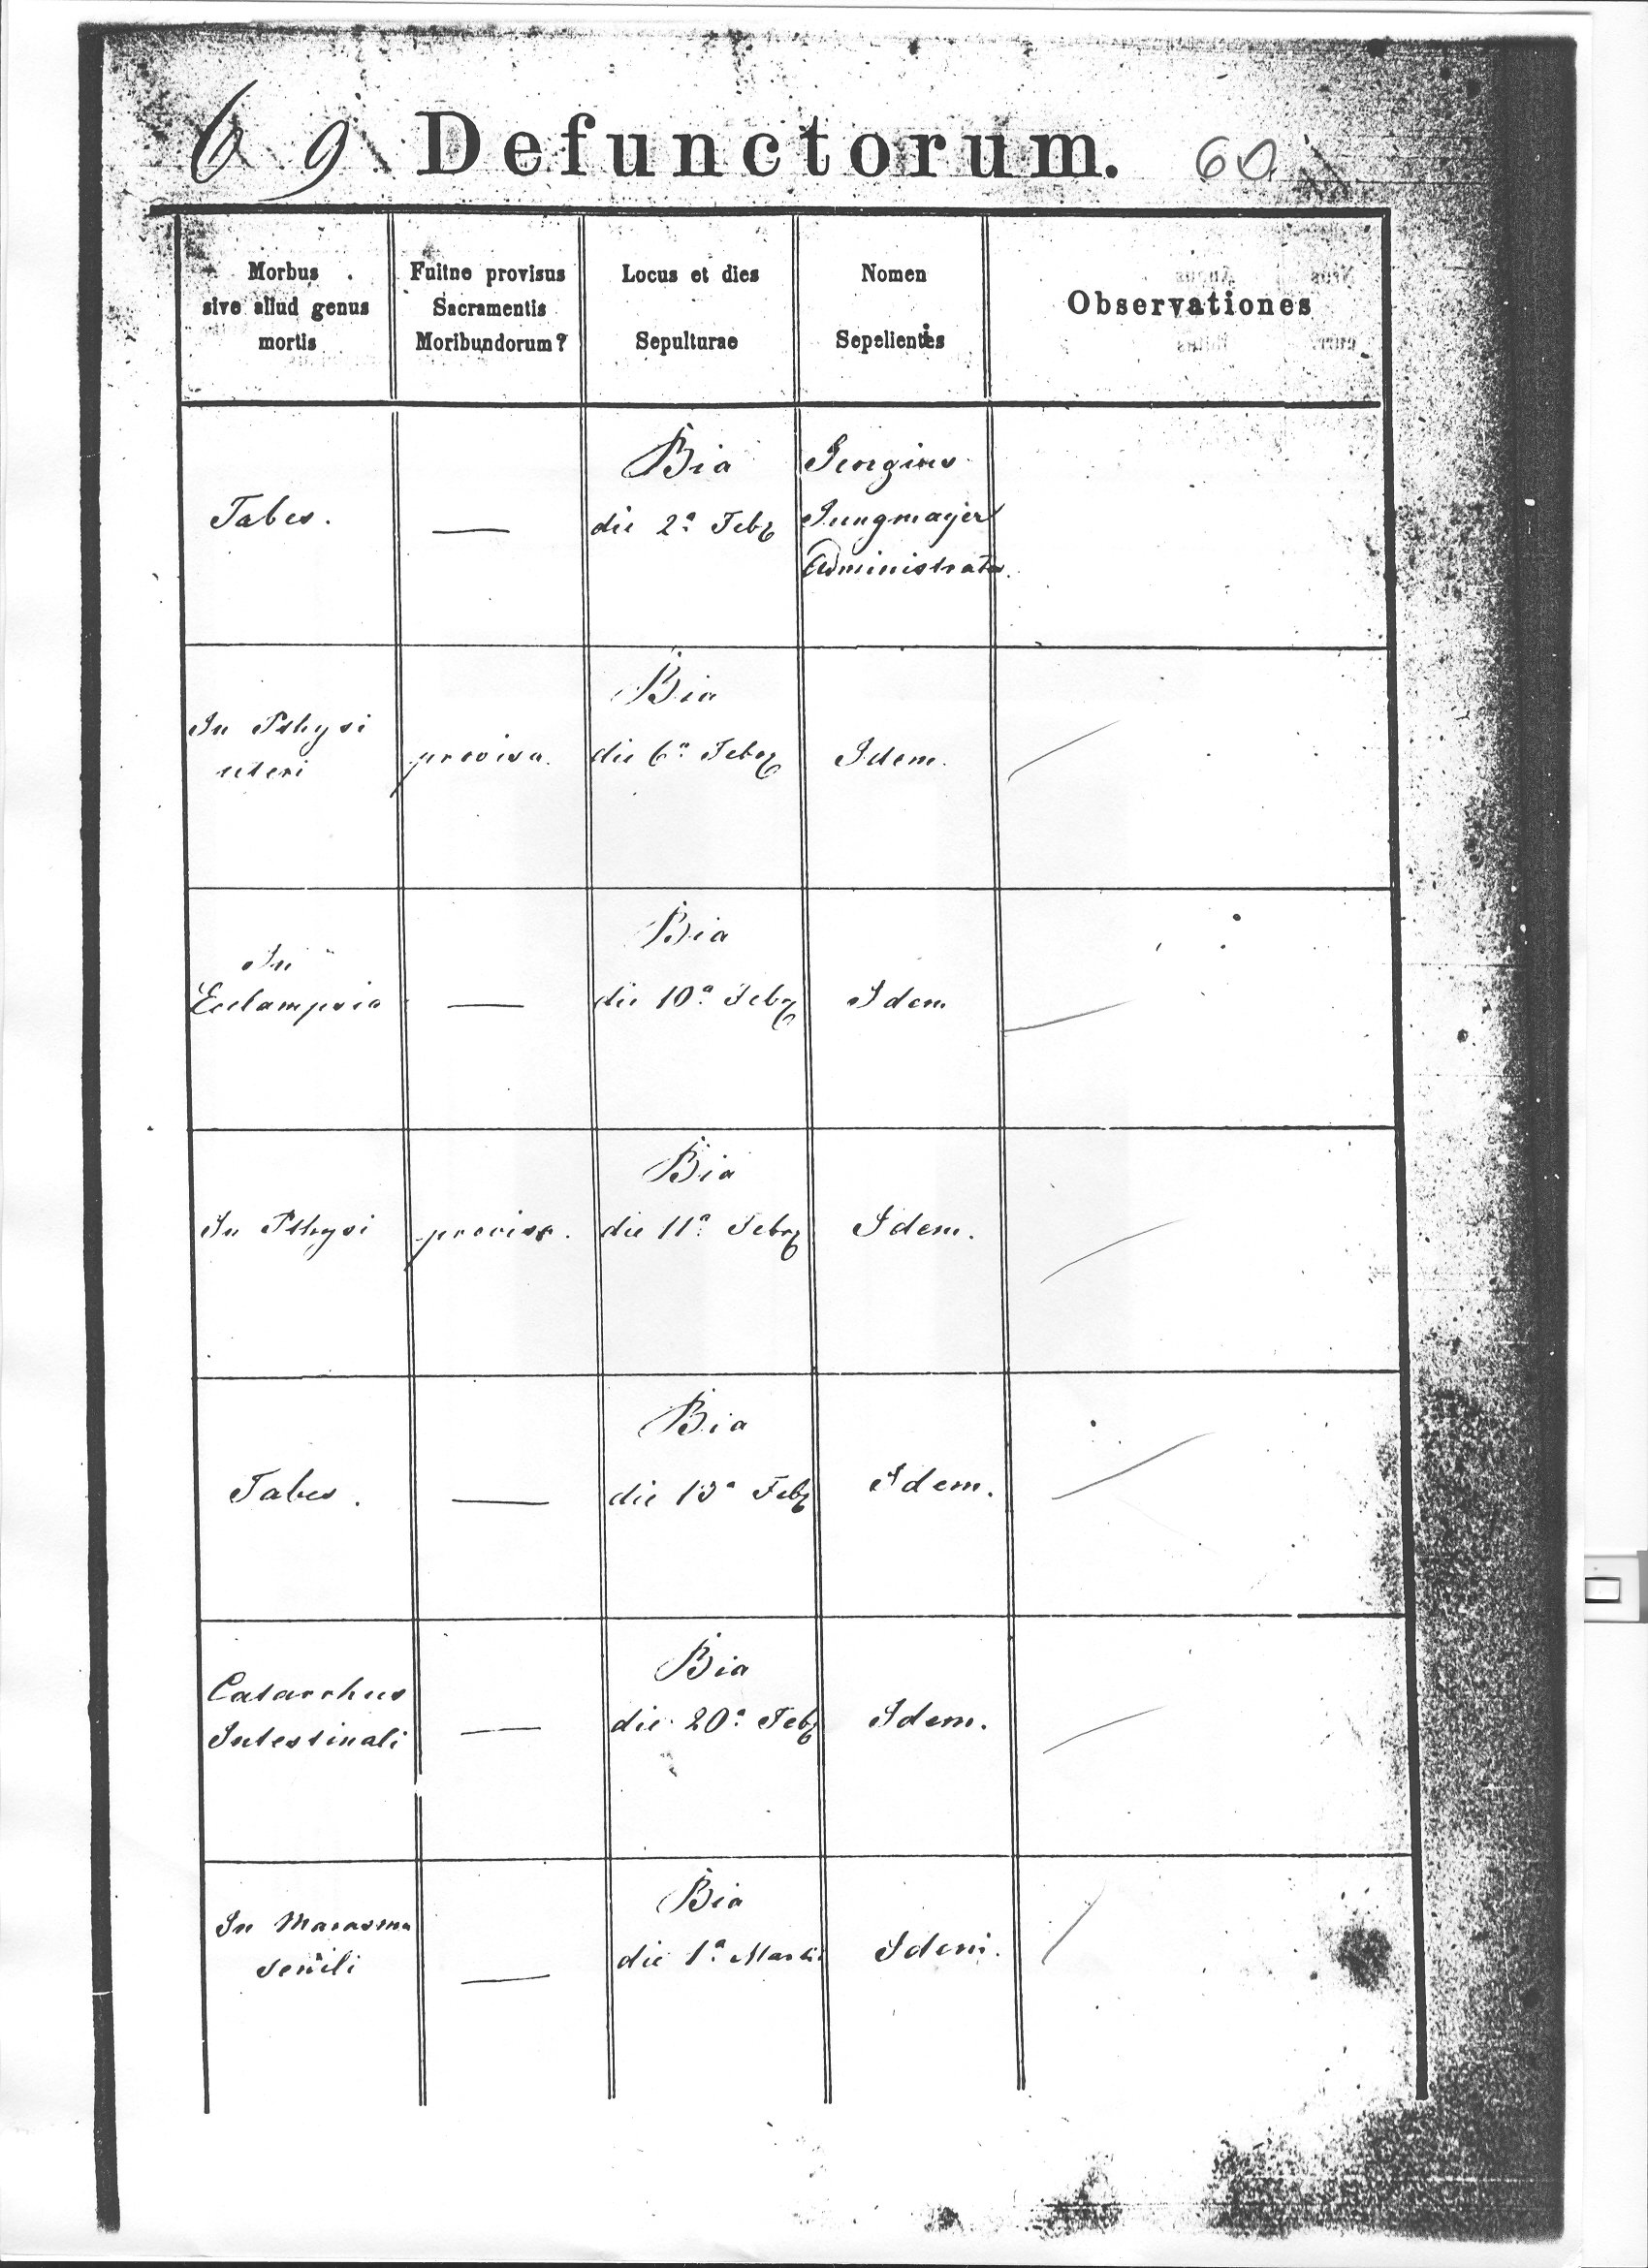 69 Defunctorum. 60.
Morbus
sive aliud genus
mortis
Fuitne provisus
Sacramentis
Moribundorum?
Locus et dies
Sepulturae
Nomen
Sepelientis
Observationes
Tabes.
—
Bia
die 2ª Febr
Georgius
Jungmayer
Administrator.
In Pthysi
uteri
provisa.
Bia
die 6ª Febr
Idem.
In
Eclampsia
—
Bia
die 10ª Febr
Idem
In Pthysi
provisa.
Bia
die 11ª Febr
Idem.
Tabes.
—
Bia
die 13ª Febr
Idem.
Catarrhus
Intestinali
—
Bia
die 20ª Febr
Idem.
In Marasmu
senili
—
Bia
die 1ª Martii
Idem.